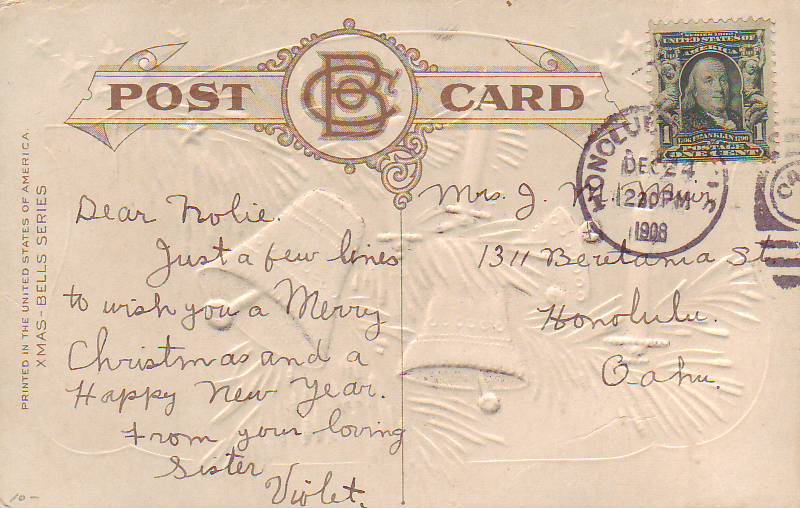 POST CARD
PRINTED IN THE UNITED STATES OF AMERICA
XMAS-BELLS SERIES
SERIES 1902
UNITED STATES OF AMERICA
1 1
FRANKLIN
POSTAGE
ONE CENT
HONOLULU
DEC 24
1230PM
1908
Dear
Just a few lines
to wish you a Merry
Christmas and a
Happy New Year.
From your loving
Sister
Violet.
Mrs. J. M.
1311 Beretania St.
Honolulu.
Oahu.
10-